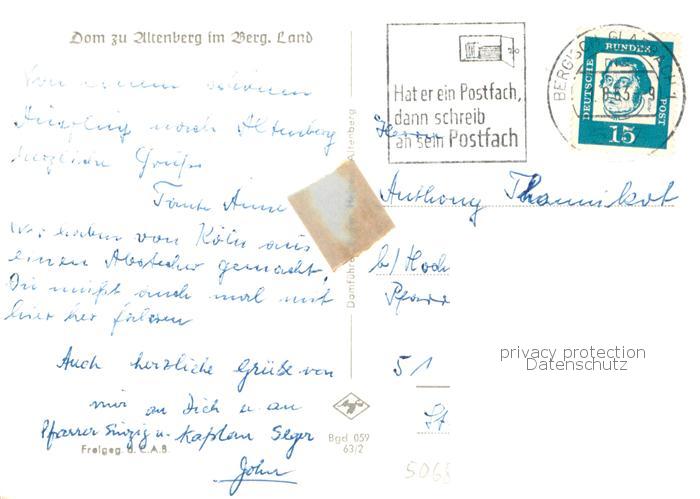 Dom zu Altenberg im Berg. Land
Von einem schönen
Ausflug nach Altenberg
herzliche Grüße
Tante Änne
Wir haben von Köln aus
einen Abstecher gemacht.
Du mußt auch mal mit
hier her fahren
Auch herzliche Grüße von
mir an Dich u. an
Pfarrer Sinzig u. Kaplan Seger
John
Freigeg. d. L.A.B.
Domführer
Altenberg
Bgd 059
63/2
Hat er ein Postfach,
dann schreib
an sein Postfach
BERGISCH GLADBACH 1
DEUTSCHE BUNDESPOST
15
Herrn
Anthony Thannikot
b/ Hoch
Pfarr
51
St.
5068
privacy protection
Datenschutz